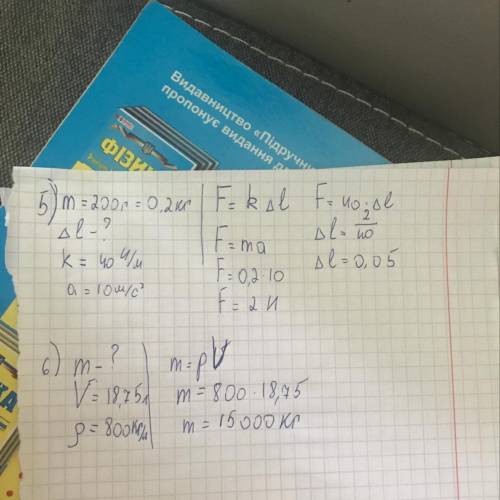 Видавництво «Підручни
пропонує видання д
ФІЗИ
5) m = 200г = 0,2кг
Δl - ?
k = 40 Н/м
a = 10 м/с²
F = k Δl
F = ma
F = 0,2·10
F = 2 Н
F = 40·Δl
Δl = 2/40
Δl = 0,05
6) m - ?
V = 18,75л
ρ = 800 кг/м
m = ρV
m = 800 · 18,75
m = 15000 кг